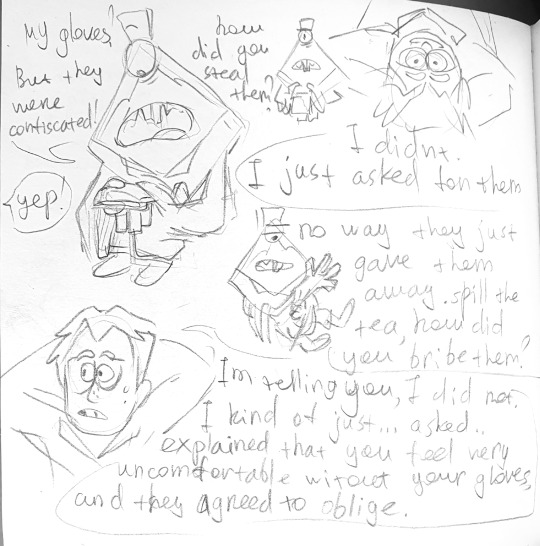 My gloves!
But they
were
confiscated!
yep!
how
did you
steal
them?
I didnt.
I just asked for them
no way they just
gave them
away. spill the
tea, how did
you bribe them?
I'm telling you, I did not.
I kind of just... asked..
explained that you feel very
uncomfortable without your gloves,
and they agreed to oblige.